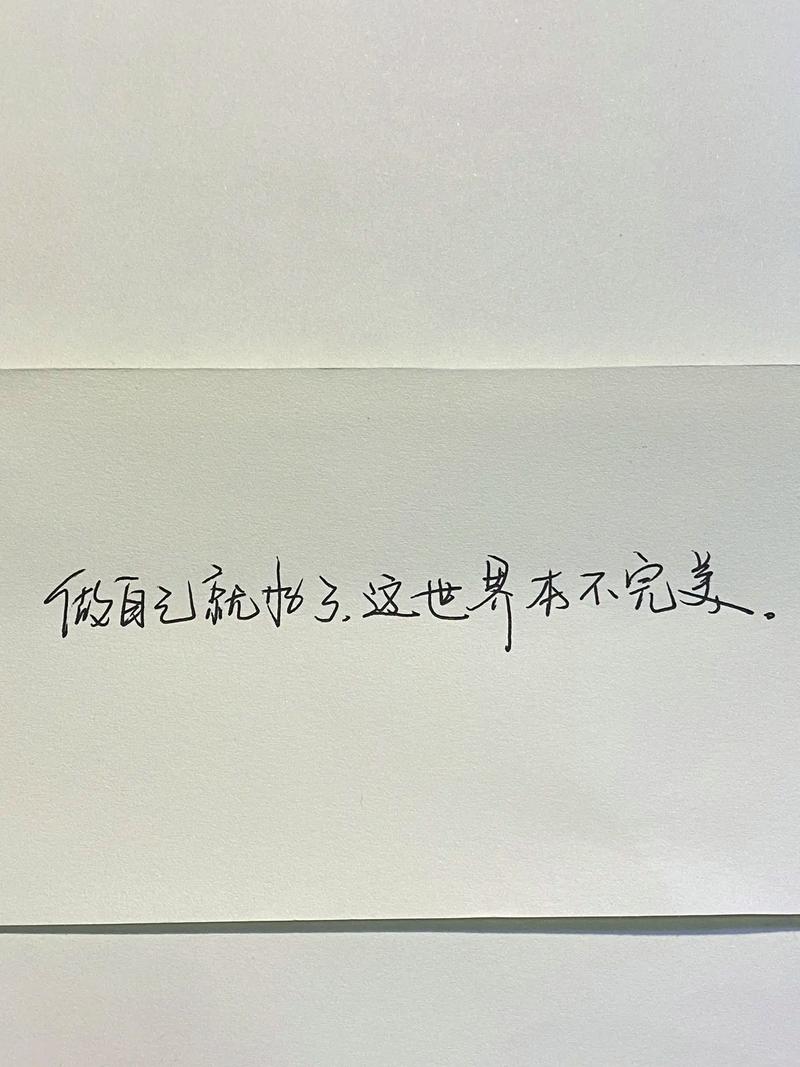 做自己就好了,这世界本不完美。